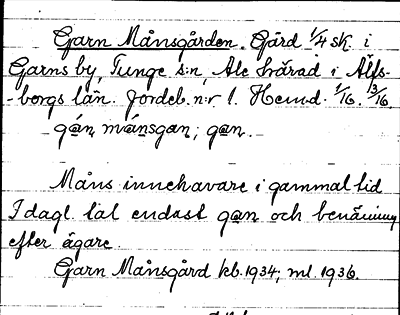 Garn Månsgården. Gård 1/4 sk. i
Garns by, Tunge s:n, Ale härad i Älfs-
-borgs län. Jordeb. n:r 1. Hemd. 1/16. 3/16.
gán mánsgan; gan.
Måns innehavare i gammal tid
I dagl. tal endast gan och benämning
efter ägare.
Garn Månsgård kb. 1934, ml. 1936.